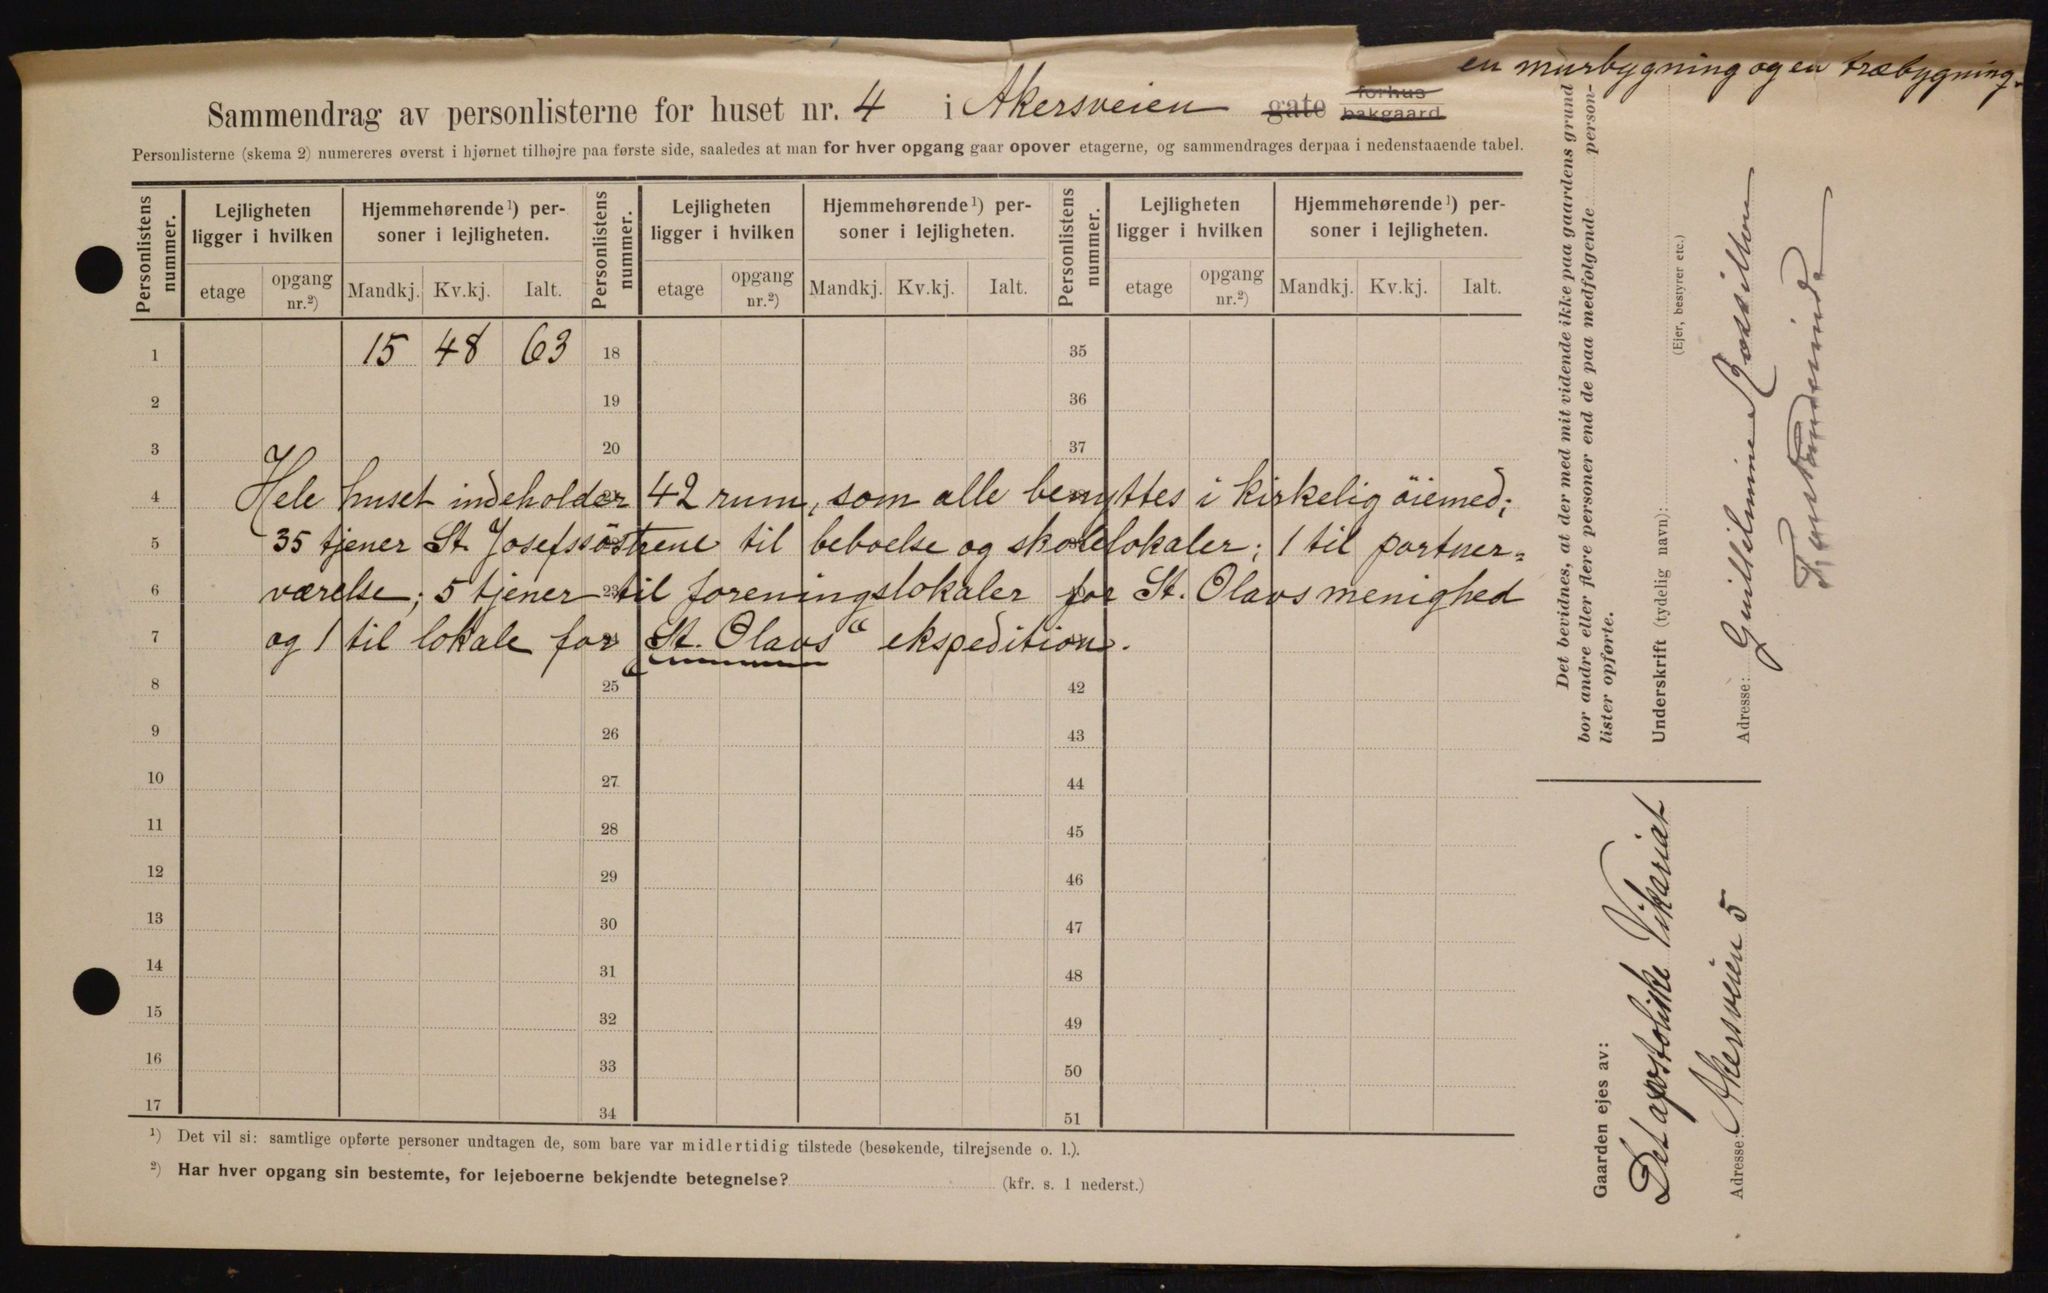 en murbygning og en træbygning.
Sammendrag av personlisterne for huset nr. 4 i Akersveien gate forhus bakgaard
Personlisterne (skema 2) numereres øverst i hjørnet tilhøjre paa første side, saaledes at man for hver opgang gaar opover etagerne, og sammendrages derpaa i nedenstaaende tabel.
Personlistens nummer. Lejligheten ligger i hvilken Hjemmehørende¹) personer i lejligheten. Personlistens nummer. Lejligheten ligger i hvilken Hjemmehørende¹) personer i lejligheten. Personlistens nummer. Lejligheten ligger i hvilken Hjemmehørende¹) personer i lejligheten.
etage opgang nr.²) Mandkj. Kv.kj. Ialt. etage opgang nr.²) Mandkj. Kv.kj. Ialt. etage opgang nr.²) Mandkj. Kv.kj. Ialt.
1 15 48 63 18 35
2 19 36
3 20 37
4 Hele huset indeholder 42 rum, som alle benyttes i kirkelig öiemed;
5 35 tjener St. Josefssöstrene til beboelse og skolelokaler; 1 til portner-
6 værelse; 5 tjener 23 til foreningslokaler for St. Olavs menighed
7 og 1 til lokale for „St. Olavs“ ekspedition.
8 25 42
9 26 43
10 27 44
11 28 45
12 29 46
13 30 47
14 31 48
15 32 49
16 33 50
17 34 51
¹) Det vil si: samtlige opførte personer undtagen de, som bare var midlertidig tilstede (besøkende, tilrejsende o. l.).
²) Har hver opgang sin bestemte, for lejeboerne bekjendte betegnelse? (kfr. s. 1 nederst.)
Det bevidnes, at der med mit vidende ikke paa gaardens grund
bor andre eller flere personer end de paa medfølgende person-
lister opførte.
Underskrift (tydelig navn):
(Ejer, bestyrer etc.)
Adresse: Guilhelmine
Forstanderinde
Gaarden ejes av:
Det apostoliske Vikariat
Adresse: Akersveien 5